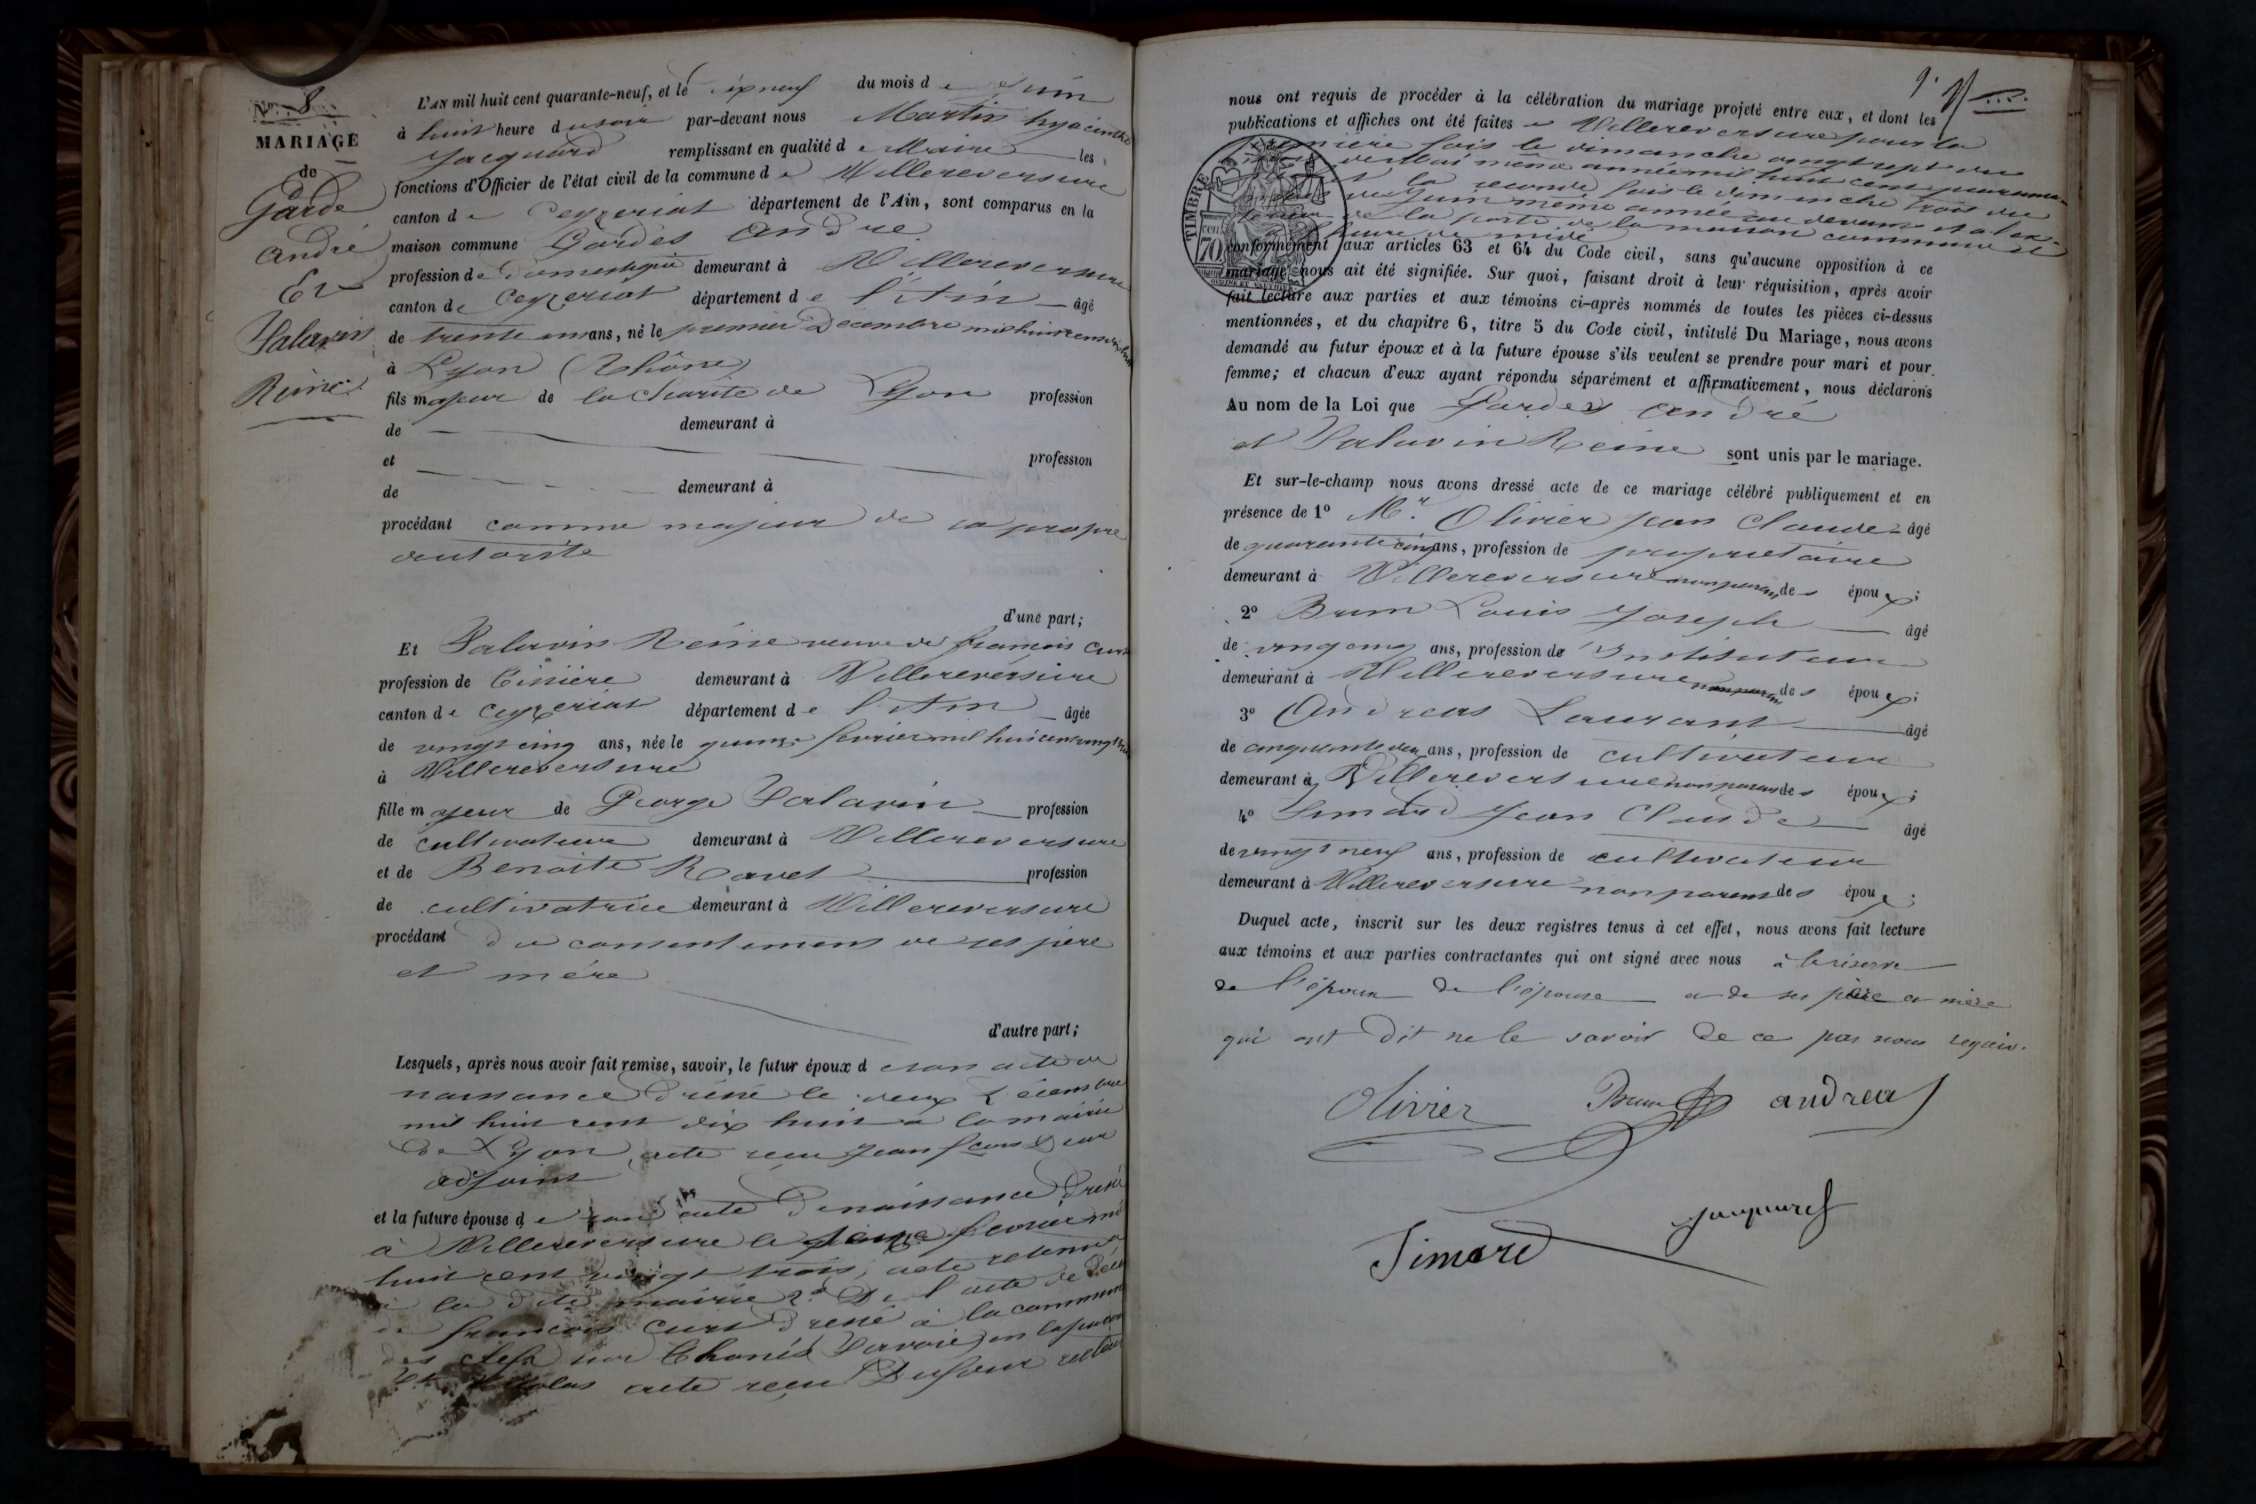 N.° 8
MARIAGE
de
Garde
André
Et
Palavin
Reine
L'AN mil huit cent quarante-neuf, et le dixneuf du mois de Juin
à huit heure du soir par-devant nous Martin hyacinthe
Jacquard remplissant en qualité de Maire les
fonctions d'Officier de l'état civil de la commune de Villereversure
canton de Ceyzeriat département de l'Ain, sont comparus en la
maison commune Gardes André
profession de Domestique demeurant à Villereversure
canton de Ceyzeriat département de l'Ain âgé
de trente ans, né le premier Décembre mil huit cent dix huit
à Lyon (Rhône)
fils majeur de la charité de Lyon profession
de demeurant à
et profession
de demeurant à
procédant comme majeur de sa propre
autorité
d'une part;
Et Palavin Reine veuve de françois Curt
profession de demeurant à Villereversure
canton de Ceyzeriat département de l'Ain âgée
de vingt cinq ans, née le quinze février mil huit cent vingt trois
à Villereversure
fille majeur de George Palavin profession
de cultivateur demeurant à Villereversure
et de Benoite Ravet profession
de cultivatrice demeurant à Villereversure
procédant du consentement de ses père
et mère
d'autre part;
Lesquels, après nous avoir fait remise, savoir, le futur époux de son acte de
naissance dréssé le deux Décembre
mil huit cent dix huit à la mairie
de Lyon, acte reçu Jean
adjoint
et la future épouse de son acte de naissance dressé
à Villereversure le seize février mil
huit cent vingt trois, acte retenu
à la dite mairie 2° De l'acte de décès
de françois Curt dressé à la commune
des clefs sur Thones (Savoie) en la paroisse
St Nicolas acte reçu Dufour recteur
nous ont requis de procéder à la célébration du mariage projeté entre eux, et dont les
publications et affiches ont été faites à Villereversure pour la
première fois le dimanche vingt sept du
mois de mai même année mil huit cent quarante
et la seconde fois le dimanche trois du
Juin même année au devant et à l'ex-
de la porte de la maison commune à
heure de midi
conformément aux articles 63 et 64 du Code civil, sans qu'aucune opposition à ce
mariage nous ait été signifiée. Sur quoi, faisant droit à leur réquisition, après avoir
fait lecture aux parties et aux témoins ci-après nommés de toutes les pièces ci-dessus
mentionnées, et du chapitre 6, titre 5 du Code civil, intitulé Du Mariage, nous avons
demandé au futur époux et à la future épouse s'ils veulent se prendre pour mari et pour
femme; et chacun d'eux ayant répondu séparément et affirmativement, nous déclarons
Au nom de la Loi que Gardes André
et Palavin Reine sont unis par le mariage.
Et sur-le-champ nous avons dressé acte de ce mariage célébré publiquement et en
présence de 1° Mr. Olivier Jean Claude âgé
de quarante cinq ans, profession de propriétaire
demeurant à Villereversure non parent des époux;
2° Brun Louis Joseph âgé
de vingt cinq ans, profession de Instituteur
demeurant à Villereversure non parent des époux;
3° Andreas Laurant âgé
de cinquante deux ans, profession de cultivateur
demeurant à Villereversure non parent des époux;
4° Simard Jean Claude âgé
de vingt neuf ans, profession de cultivateur
demeurant à Villereversure non parent des époux;
Duquel acte, inscrit sur les deux registres tenus à cet effet, nous avons fait lecture
aux témoins et aux parties contractantes qui ont signé avec nous à la réserve
de l'époux de l'épouse et de ses père et mère
qui ont dit ne le savoir de ce par nous requis.
Olivier Brun andreas
Simard Jacquard
TIMBRE
70